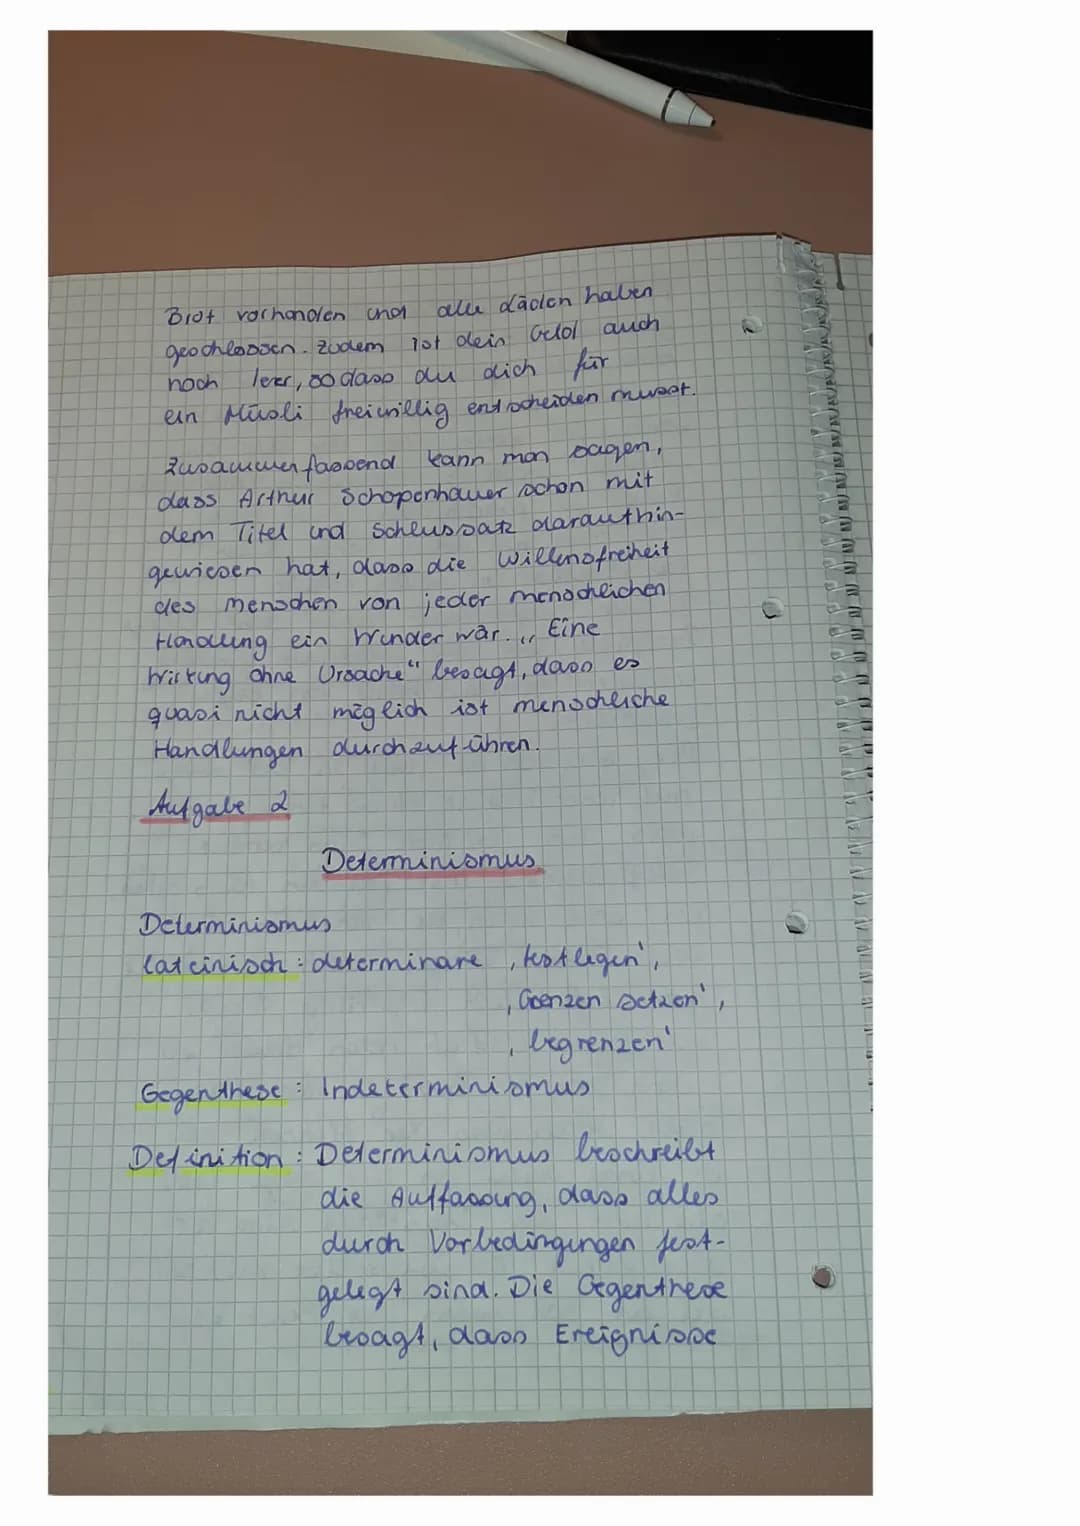 Brot vorhanden und alle Läden haben
geschlossen. Zudem ist dein Geld auch
noch leer, sodass du dich für
ein Müsli freiwillig entscheiden musst.
Zusammenfassend kann man sagen,
dass Arthur Schopenhauer schon mit
dem Titel und Schlussatz daraufhin-
gewiesen hat, dass die Willensfreiheit
des Menschen von jeder menschlichen
Handlung ein Wunder wär. „Eine
Wirkung ohne Ursache" besagt, dass es
quasi nicht möglich ist menschliche
Handlungen durchzuführen.
Aufgabe 2
Determinismus
Determinismus
lateinisch: determinare ‚festlegen',
‚Grenzen setzen',
‚begrenzen'
Gegenthese: Indeterminismus
Definition: Determinismus beschreibt
die Auffassung, dass alles
durch Vorbedingungen fest-
gelegt sind. Die Gegenthese
besagt, dass Ereignisse